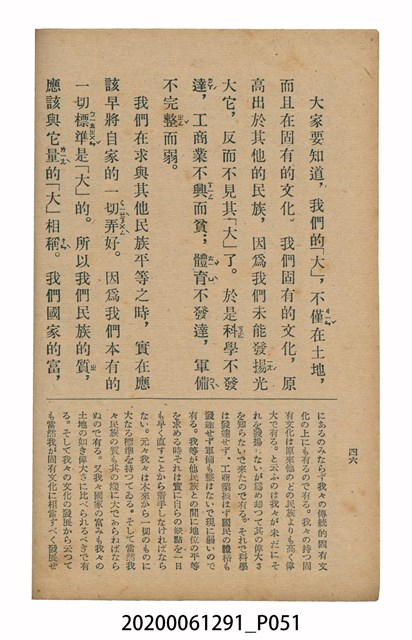 大家要知道，我們的「大」，不僅在土地，
而且在固有的文化。我們固有的文化，原
高出於其他的民族，因爲我們未能發揚光
大它，反而不見其「大」了。於是科學不發
達，工商業不興而貧；體育不發達，軍備
不完整而弱。
我們在求與其他民族平等之時，實在應
該早將自家的一切弄好。因爲我們本有的
一切標準是「大」的。所以我們民族的質，
應該與它量的「大」相稱。我們國家的富，
四六
にあるのみならず我々の傳統的固有文
化の上にも有るので有る。我々の持つ固
有文化は原來他のどの民族よりも高く偉
大で有る。と云ふのは我々が未だにそ
れを發揚しないが爲め却つて其の偉大さ
を知らないで來たので有る。それで科學
は發達せず、工商業振はず國民の體格も
發達せず軍備も整はないで現に弱いので
有る。我等が他民族との間に地位の平等
を求める時それは實に自らの缺點を一日
も早く直すことから着手しなければなら
ない。元々我々は本來から一切のものに
大なる標準を持つてゐる。そして當然我
々民族の質も其の樣に大であらねばなら
ぬので有る。又我々國家の富みも我々の
土地の如き偉大さに比べられるべきで有
る。そして我々の文化の發展から云つて
も當然我が固有文化に相當すべく發展せ
20200061291_P051